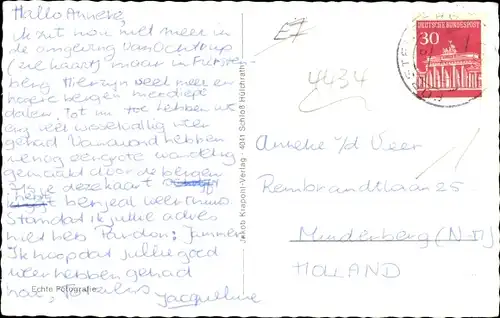 Hallo Anneke,
Ik zit nou niet meer in
de omgeving van Ochtrup
(zie kaart) maar in Fürsten-
berg. Hier zijn veel meer en
hogere bergen met diepe
dalen. Tot nu toe hebben we
erg veel wisselvallig weer
gehad. Vanavond hebben
we nog een grote wandeling
gemaakt door de bergen
Als je deze kaart
hebt ben je al weer thuis.
Stom dat ik jullie adres
niet heb. Pardon: Jammer.
Ik hoop dat jullie goed
weer hebben gehad
Jacqueline
Echte Fotografie
Jakob Krapohl-Verlag · 4041 Schloß Hülchrath
4434
DEUTSCHE BUNDESPOST
30
Anneke v/d Veer
Rembrandtlaan 25
Muiderberg (N.H.)
HOLLAND